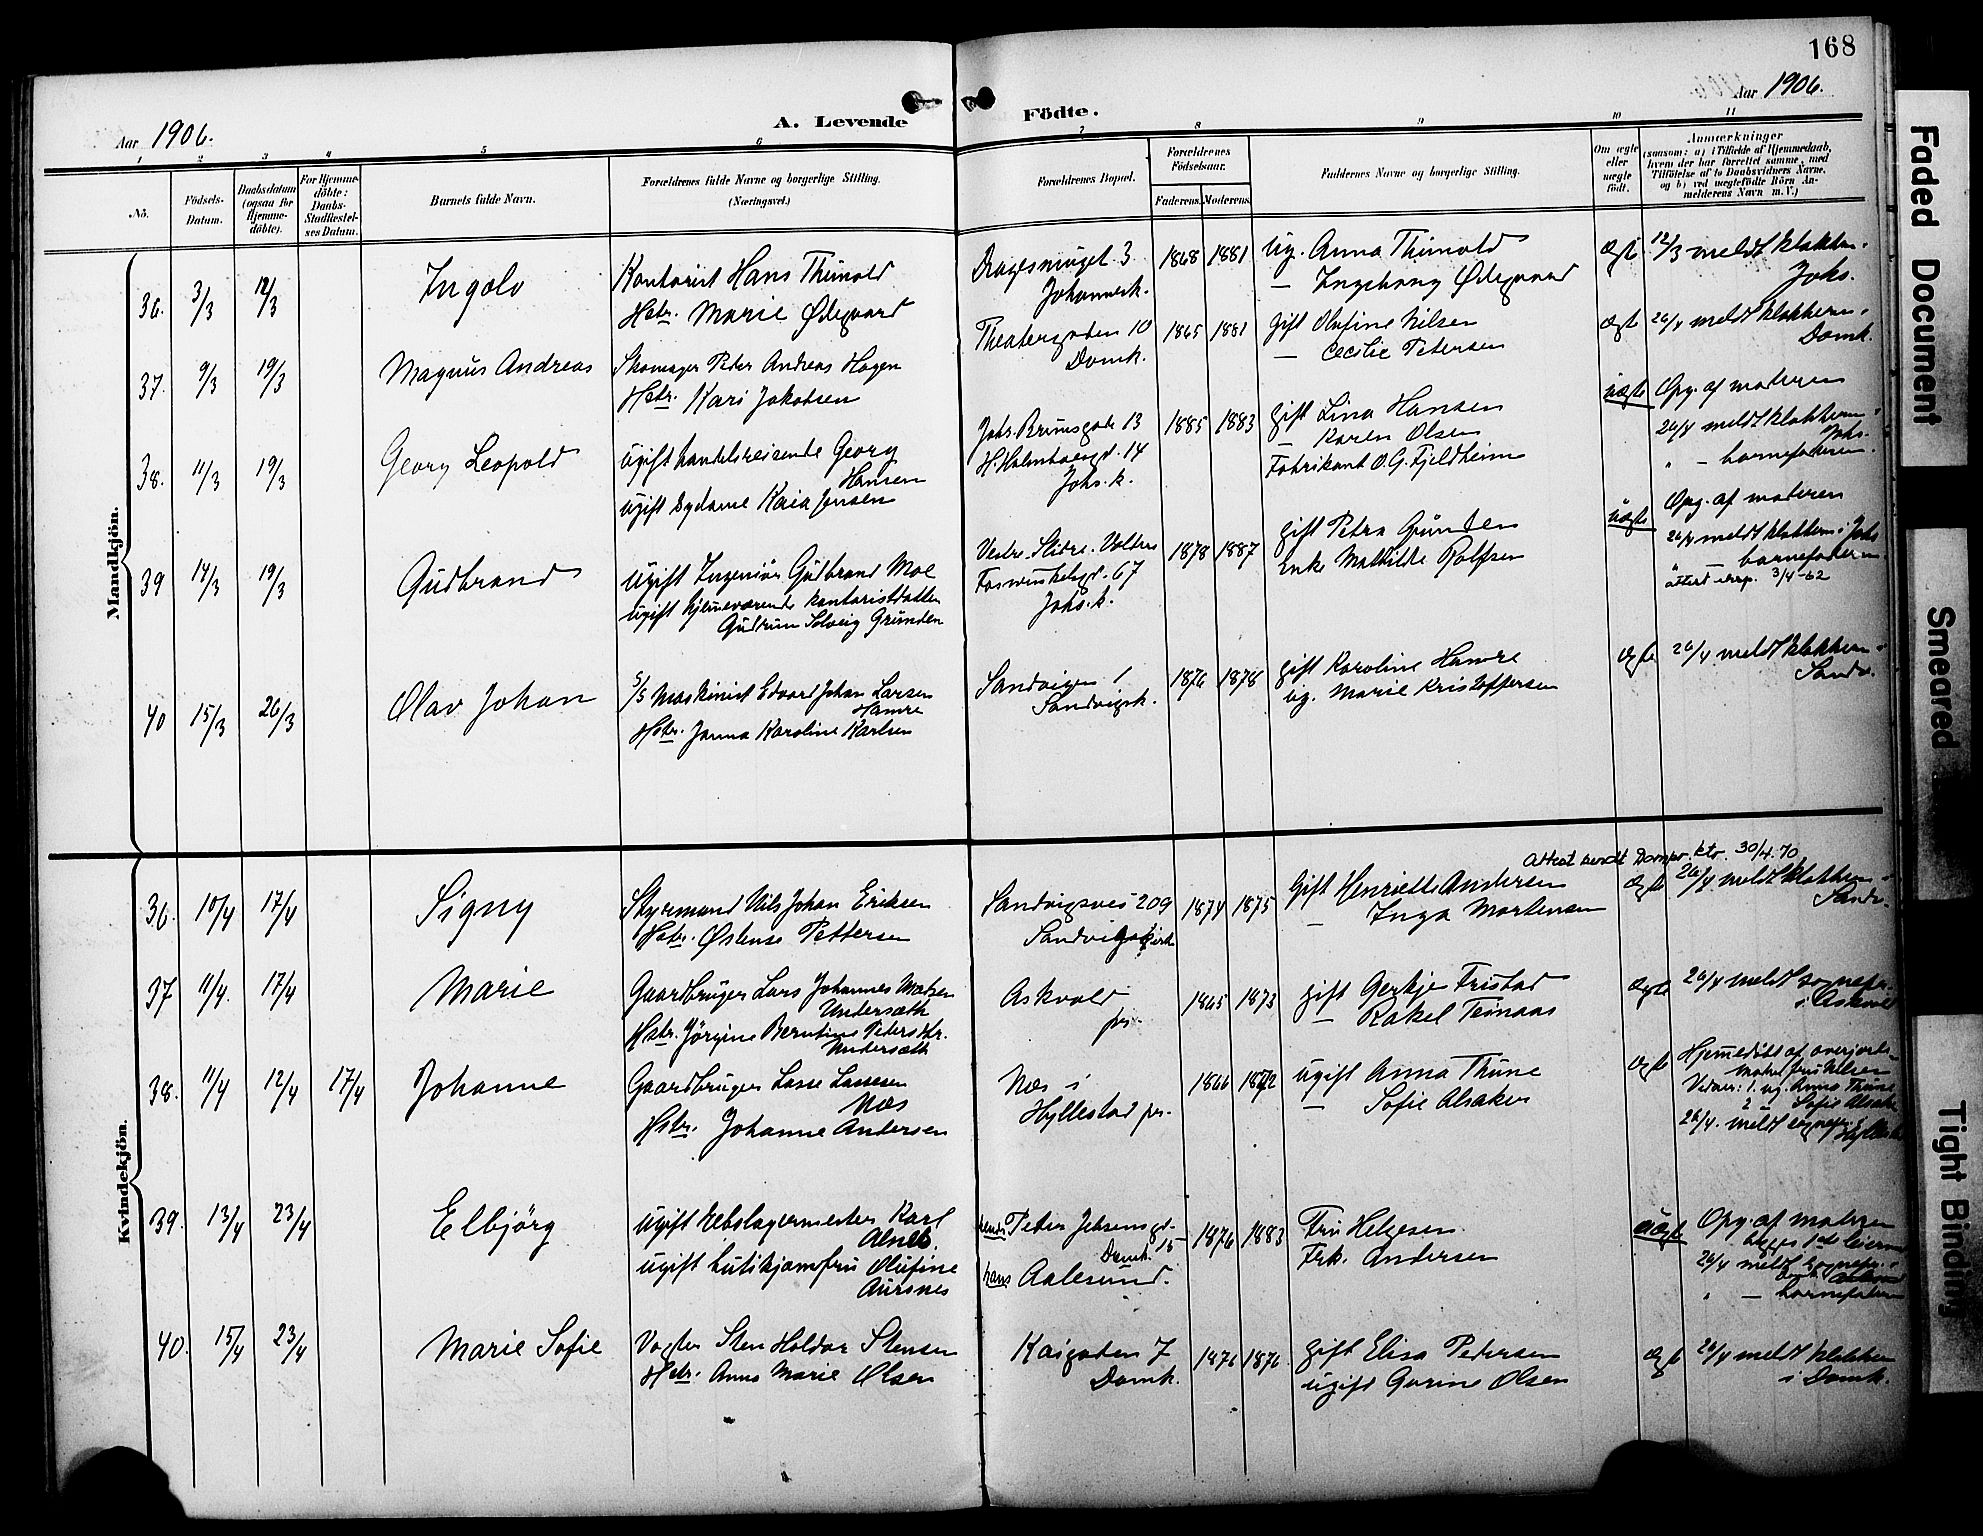 168
Aar 1906.
A. Levende Födte.
Aar 1906.
1 2 3 4 5 6 7 8 9 10 11
No.
Födsels-
Datum.
Daabsdatum
(ogsaa for
Hjemme-
döbte).
For Hjemme-
döbte:
Daabs-
Stadfæstel-
ses Datum.
Barnets fulde Navn.
Forældrenes fulde Navne og borgerlige Stilling.
(Næringsvei.)
Forældrenes Bopæl.
Forældrenes
Födselsaar.
Faderens. Moderens.
Faddernes Navne og borgerlige Stilling.
Om ægte
eller
uægte
födt.
Anmærkninger
(saasom: a) i Tilfælde af Hjemmedaab,
hvem der har forrettet samme, med
Tilföielse af to Daabsvidners Navne,
og b) ved uægtefödte Börn An-
melderens Navn m. V.)
Mandkjön.
36. 3/3 12/3
Ingolv
Kontorist Hans Thimold
Hstr. Marie Ødegaard
Dragesmuget 3
Johannesk.
1868 1881
Ug. Anna Thimold
— Ingeborg Ødegaard
Ægte
12/3 meldt klokkern i
Johs.
37. 9/3 19/3
Magnus Andreas
Skomager Peder Andreas Hagen
Hstr. Kari Jakobsen
Theatergaden 10
Domk.
1865 1881
Gift Olufine Nilsen
— Cecilie Petersen
Ægte
26/4 meldt klokkern i
Domk.
38. 11/3 19/3
Georg Leopold
Ugift handelsreisende Georg
Hansen
Ugift Sydame Kaia Jensen
Johs. Brunsgade 13
H. Holmboesgd. 14
Johs. k.
1885 1883
Gift Lina Hansen
— Karen Olsen
Fabrikant O. G. Fjeldheim
Uægte
Opg. af moderen
26/4 meldt klokkern i
Johs.
" — barnefaderen.
39 14/3 19/3
Gudbrand
Ugift Ingeniør Gudbrand Moe
Ugift hjemmeværende kontoristdatter
Gudrun Solveig Grunden
Vestre Slidre, Valdres
Fosswinkelsgd. 67
Johs. k.
1878 1887
Gift Petra Grunden
Enke Mathilde Rolfsen
Uægte
Opg. af moderen
26/4 meldt klokkern i Johs
" — barnefaderen
attest eksp. 3/4-62
40 15/3 26/3
Olav Johan
S/S Maskinist Edvard Johan Larsen
Hamre
Hstr. Janna Karoline Karlsen
Sandvigen 1
Sandvigsk.
1876 1878
Gift Karoline Hamre
Ug. Marie Kristoffersen
Ægte
26/4 meldt klokkern i
Sandv.
Kvindekjön.
Attest sendt Dompr. ktr. 30/4.70
36. 10/4 17/4
Signy
Styrmand Nils Johan Eriksen
Hstr. Østense Pettersen
Sandvigsvei 209
Sandvigskirk
1874 1875
Gift Henriette Andersen
— Inga Mortensen
Ægte
26/4 meldt klokkern i
Sandv.
37 11/4. 17/4
Marie
Gaardbruger Lars Johannes Matsen
Undersæth
Hstr. Jörgine Berntine Petersdtr.
Undersæth
Askvold
prs.
1865 1873
Gift Gertje Fristad
— Rakel Teinaas
Ægte
26/4 meldt sognepr.
i Askvold
38. 11/4 12/4 17/4
Johanne
Gaardbruger Lasse Lassesen
Næs
Hstr. Johanne Andersen
Næs i
Hyllestad prs.
1866 1872
Ugift Anna Thune
— Sofie Alsaker
Ægte
Hjemmedöbt af overjorde-
moder fru Nilsen
Vidner: 1. ug. Anna Thune
2 Sofie Alsaker
26/4. meldt sognepr. i
Hyllestad
39. 13/4 23/4
Elbjörg
Ugift Rebslagermester Karl
Alnes
Ugift butikjomfru Olufine
Aursnes
hendes Peter Jebsensgd.
15 Domk.
hans Aalesund.
1876 1883
Fru Helgesen
Frk. Andersen
Uægte
Opg. af moderen
26/4 meldt sognepr. i
" — barnefaderen
40. 15/4 23/4
Marie Sofie
Vogter Sten Holdor Stensen
Hstr. Anna Marie Olsen
Kaigaten 7
Domk.
1876 1876
Gift Elisa Pedersen
Ugift Gurine Olsen
Ægte
26/4 meldt klokkern
i Domk.
Faded Document
Smeared
Tight Binding